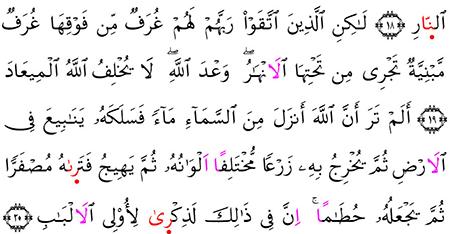 اَ۬لنّ۪ارِ ۝١٨ لَٰكِنِ اِ۬لذِينَ اَ۪تَّقَوْاْ رَبَّهُمْ لَهُمْ غُرَفٞ مِّن فَوْقِهَا غُرَفٞ
مَّبْنِيَّةٞ تَجْرِے مِن تَحْتِهَا اَ۬لَانْهَٰرُۖ وَعْدَ اَ۬للَّهِۖ لَا يُخْلِفُ اُ۬للَّهُ اُ۬لْمِيعَادَ
۝١٩ أَلَمْ تَرَ أَنَّ اَ۬للَّهَ أَنزَلَ مِنَ اَ۬لسَّمَآءِ مَآءٗ فَسَلَكَهُۥ يَنَٰبِيعَ فِے
اِ۬لَارْضِ ثُمَّ يُخْرِجُ بِهِۦ زَرْعاٗ مُّخْتَلِفاً اَلْوَٰنُهُۥ ثُمَّ يَهِيجُ فَتَر۪ىٰهُ مُصْفَرّاٗ
ثُمَّ يَجْعَلُهُۥ حُطَٰماًۚ اِنَّ فِے ذَٰلِكَ لَذِكْر۪ىٰ لِأُوْلِے اِ۬لَالْبَٰبِ ۝٢٠